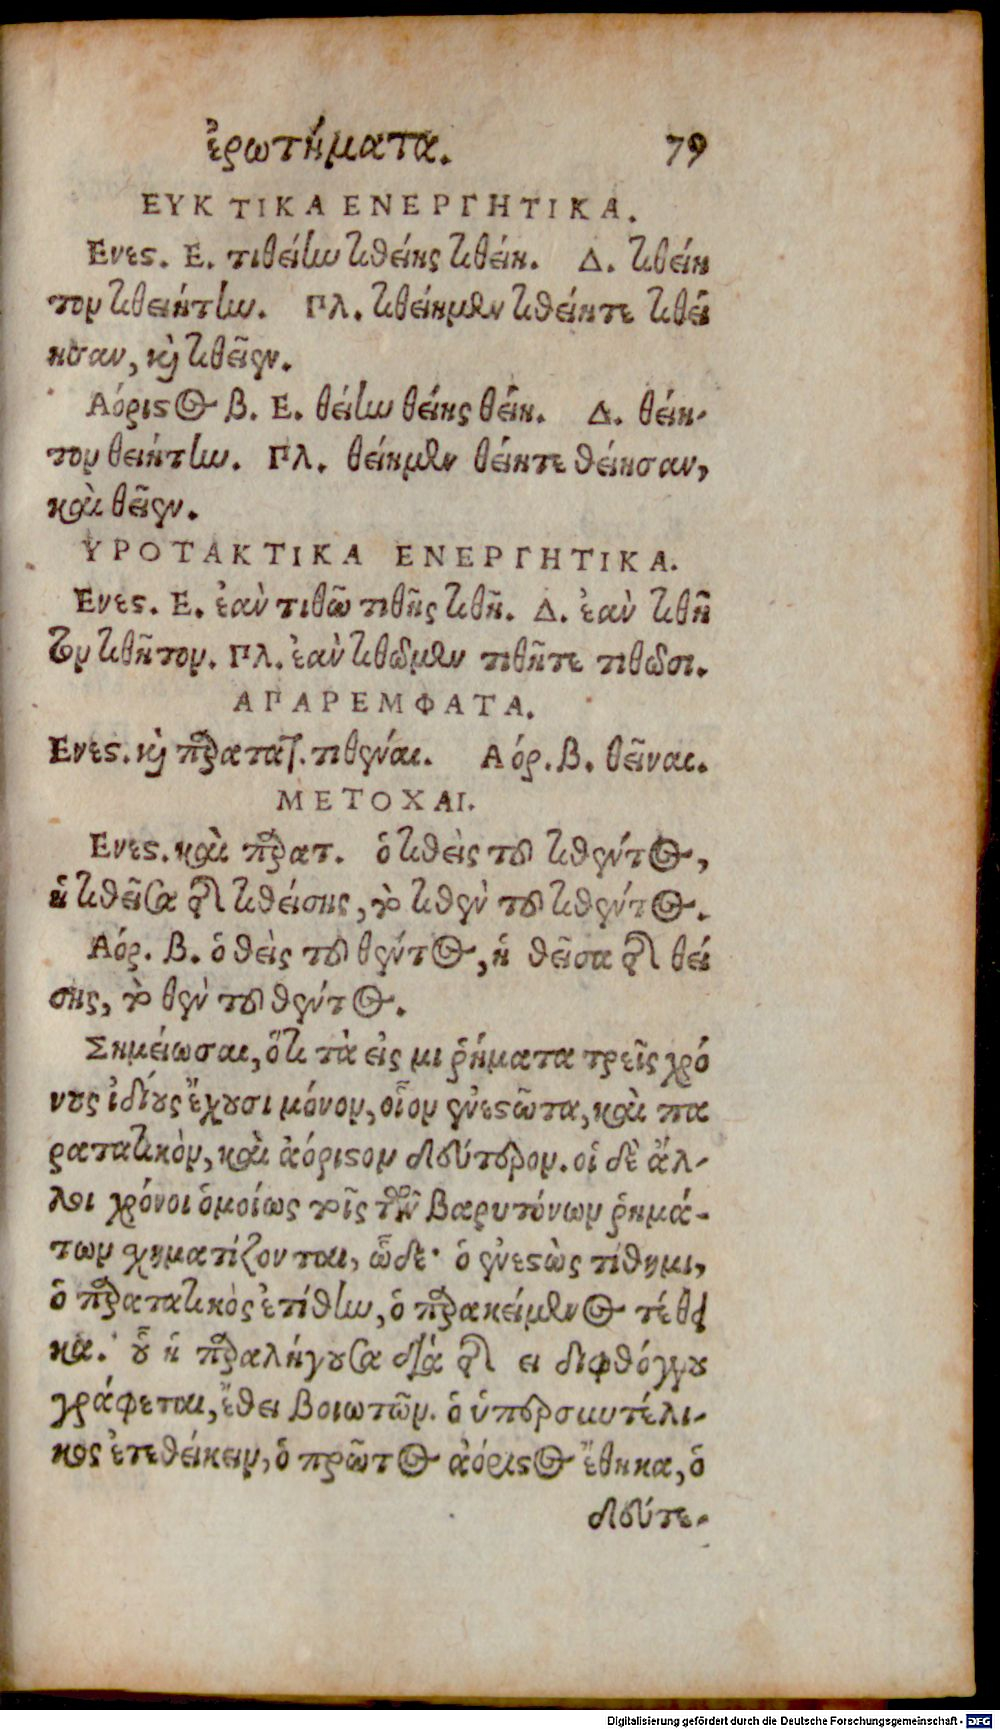 ἐρωτήματα. 79
ΕΥΚΤΙΚΑ ΕΝΕΡΓΗΤΙΚΑ.
Ενεϛ. Ε. τιθείην τιθείης τιθείη. Δ. τιθείη
τον τιθειήτην. Πλ. τιθείημεν τιθείητε τιθεί
ησαν, κὶ τιθεῖεν.
Αόριϛος β. Ε. θείην θείης θείη. Δ. θείη-
τον θειήτην. Πλ. θείημεν θείητε θείησαν,
καὶ θεῖεν.
ΥΡΟΤΑΚΤΙΚΑ ΕΝΕΡΓΗΤΙΚΑ.
Ενεϛ. Ε. ἐαν τιθῶ τιθῇς τιθῇ. Δ. ἐαν τιθῆ
τον τιθῆτον. Πλ. ἐαν τιθῶμεν τιθῆτε τιθῶσι.
ΑΠΑΡΕΜΦΑΤΑ.
Ενεϛ. κὶ παρατατ. τιθέναι. Αόρ. β. θεῖναι.
ΜΕΤΟΧΑΙ.
Ενεϛ. καὶ παρατ. ὁ τιθεὶς τοῦ τιθέντος,
ἡ τιθεῖσα τῆς τιθείσης, τὸ τιθὲν τοῦ τιθέντος.
Αόρ. β. ὁ θεὶς τοῦ θέντος, ἡ θεῖσα τῆς θεί
σης, τὸ θὲν τοῦ θέντος.
Σημείωσαι, ὅτι τὰ εἰς μι ῥήματα τρεῖς χρό
νους ἰδίους ἔχουσι μόνον, οἷον ἐνεϛῶτα, καὶ πα
ρατατικὸν, καὶ ἀόριϛον δεύτερον. οἱ δὲ ἄλ-
λοι χρόνοι ὁμοίως τοῖς τῶν βαρυτόνων ῥημά-
των σχηματίζονται, ὧδε· ὁ ἐνεϛὼς τίθημι,
ὁ παρατατικὸς ἐτίθην, ὁ παρακείμενος τέθει
κα. οὗ ἡ παραλήγουσα διὰ τῆς ει διφθόγγου
γράφεται, ἔθει βοιωτῶν. ὁ ὑπερσυντέλι-
κος ἐτεθείκειν, ὁ πρῶτος ἀόριϛος ἔθηκα, ὁ
δεύτε-
Digitalisierung gefördert durch die Deutsche Forschungsgemeinschaft - DFG